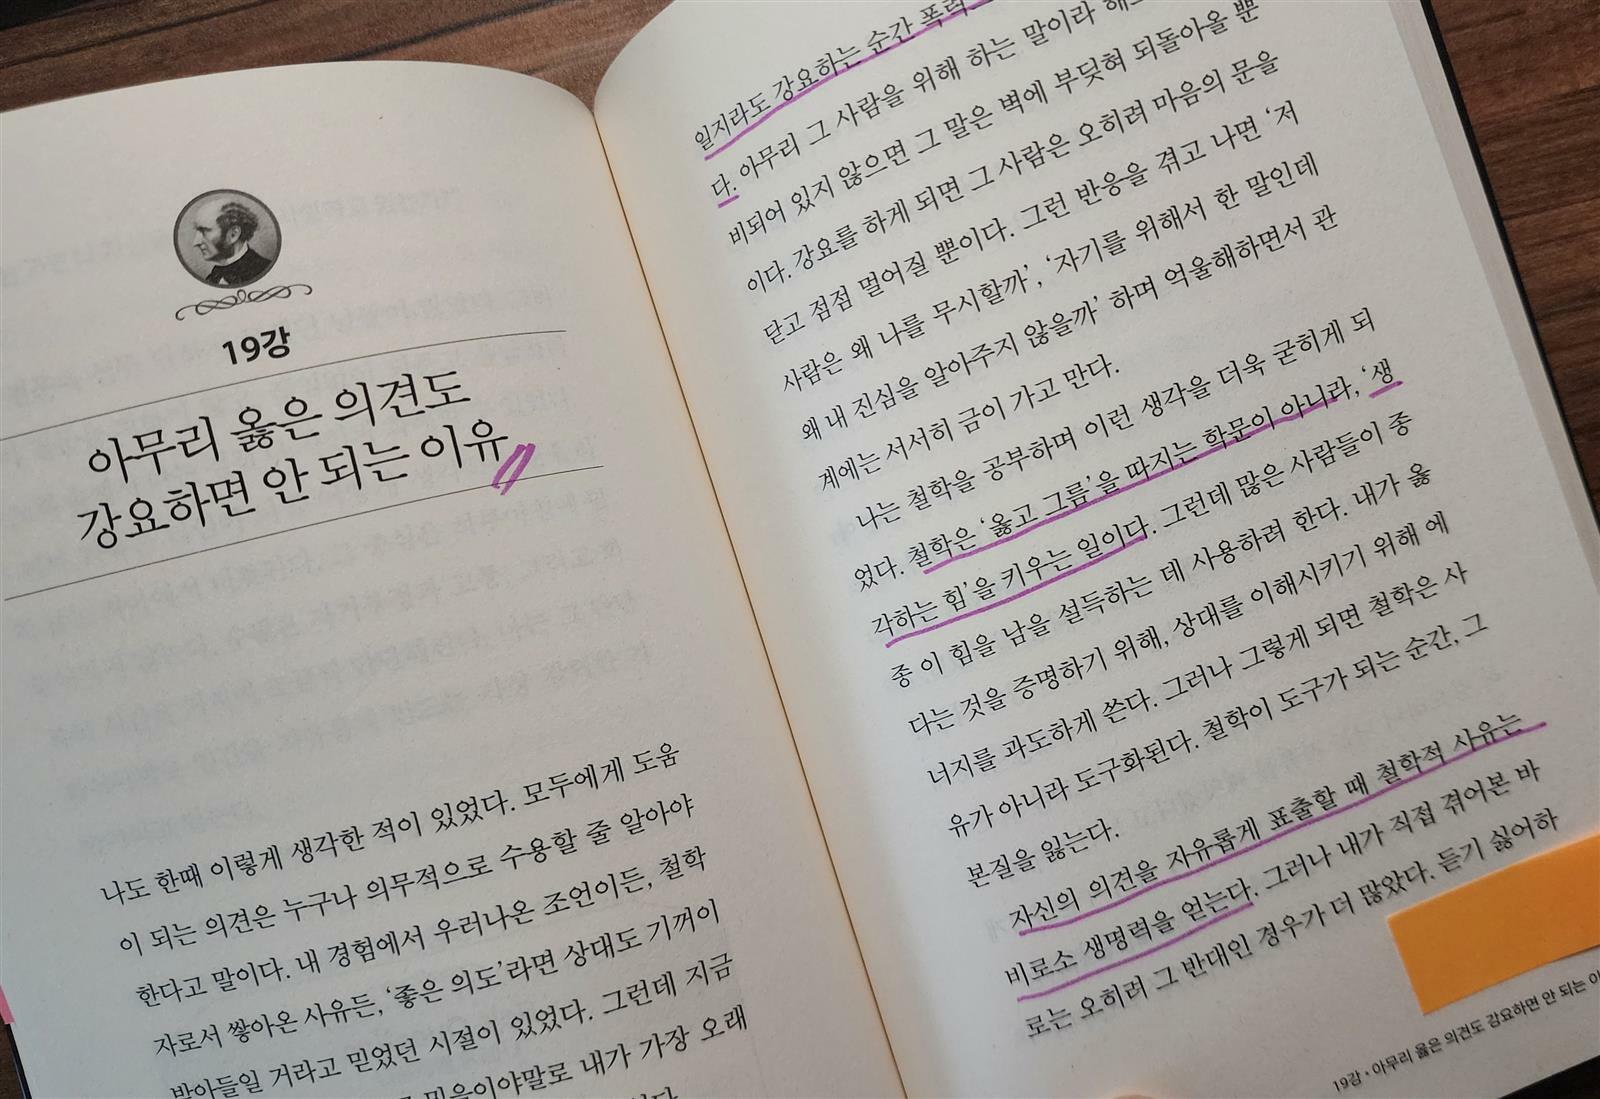 19강
아무리 옳은 의견도
강요하면 안 되는 이유
나도 한때 이렇게 생각한 적이 있었다. 모두에게 도움
이 되는 의견은 누구나 의무적으로 수용할 줄 알아야
한다고 말이다. 내 경험에서 우러나온 조언이든, 철학
자로서 쌓아온 사유든, ‘좋은 의도’라면 상대도 기꺼이
받아들일 거라고 믿었던 시절이 있었다. 그런데 지금
믿음이야말로 내가 가장 오래
일지라도 강요하는 순간
다. 아무리 그 사람을 위해 하는 말이라
비되어 있지 않으면 그 말은 벽에 부딪혀 되돌아올 뿐
이다. 강요를 하게 되면 그 사람은 오히려 마음의 문을
닫고 점점 멀어질 뿐이다. 그런 반응을 겪고 나면 ‘저
사람은 왜 나를 무시할까’, ‘자기를 위해서 한 말인데
왜 내 진심을 알아주지 않을까’ 하며 억울해하면서 관
계에는 서서히 금이 가고 만다.
나는 철학을 공부하며 이런 생각을 더욱 굳히게 되
었다. 철학은 ‘옳고 그름’을 따지는 학문이 아니라, ‘생
각하는 힘’을 키우는 일이다. 그런데 많은 사람들이 종
종 이 힘을 남을 설득하는 데 사용하려 한다. 내가 옳
다는 것을 증명하기 위해, 상대를 이해시키기 위해 에
너지를 과도하게 쓴다. 그러나 그렇게 되면 철학은 사
유가 아니라 도구화된다. 철학이 도구가 되는 순간, 그
본질을 잃는다.
자신의 의견을 자유롭게 표출할 때 철학적 사유는
비로소 생명력을 얻는다. 그러나 내가 직접 겪어본 바
로는 오히려 그 반대인 경우가 더 많았다. 듣기 싫어하
19강 · 아무리 옳은 의견도 강요하면 안 되는